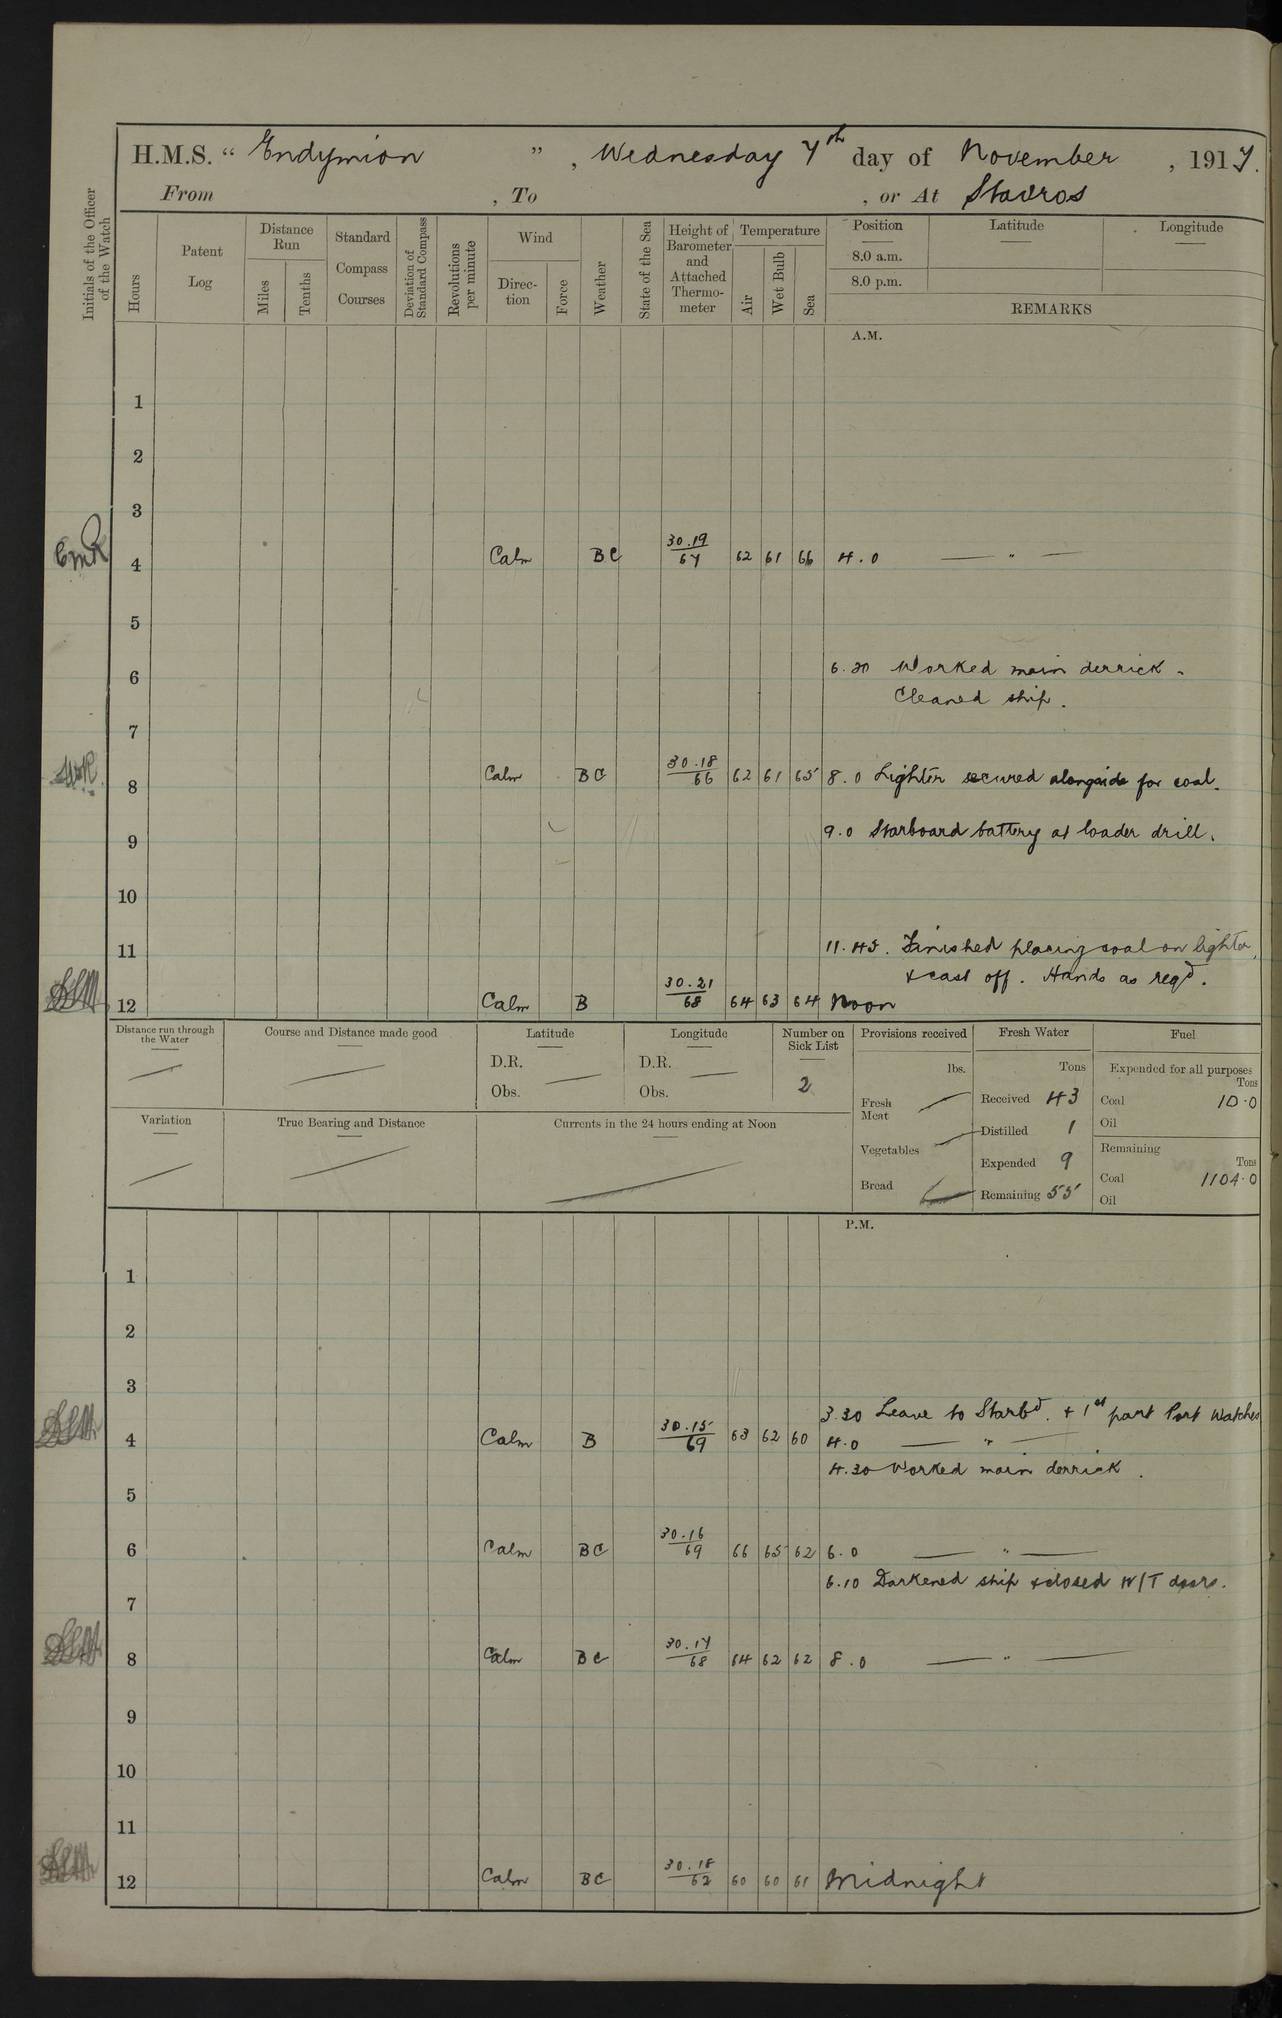 H.M.S. " Endymion " , Wednesday 7th day of November , 1917.
From , To , or At Stavros
Initials of the Officer of the Watch
Hours
Patent Log
Distance Run
Miles
Tenths
Standard Compass Courses
Deviation of Standard Compass
Revolutions per minute
Wind
Direc-tion
Force
Weather
State of the Sea
Height of Barometer and Attached Thermo-meter
Temperature
Air
Wet Bulb
Sea
Position Latitude Longitude
8.0 a.m.
8.0 p.m.
REMARKS
A.M.
1
2
3
4 Calm BC 30.19/67 62 61 66 4.0 — " —
5
6 6.30 Worked main derrick.
Cleaned ship.
7
8 Calm BC 30.18/66 62 61 65 8.0 Lighter secured alongside for coal.
9 9.0 Starboard battery at loader drill.
10
11 11.45. Finished placing coal on lighter
& cast off. Hands as reqd.
12 Calm B 30.21/68 64 63 64 Noon
Distance run through the Water
Course and Distance made good
Latitude
D.R.
Obs.
Longitude
D.R.
Obs.
Number on Sick List
2
Variation
True Bearing and Distance
Currents in the 24 hours ending at Noon
Provisions received
lbs.
Fresh Meat
Vegetables
Bread
Fresh Water
Tons
Received 43
Distilled 1
Expended 9
Remaining 55
Fuel
Expended for all purposes
Tons
Coal 10.0
Oil
Remaining
Tons
Coal 1104.0
Oil
P.M.
1
2
3
3.30 Leave to Starbd. & 1st part Port Watches
4 Calm B 30.15/69 63 62 60 4.0 — " —
4.30 Worked main derrick.
5
6 Calm BC 30.16/69 66 65 62 6.0 — " —
6.10 Darkened ship & closed W/T doors.
7
8 Calm BC 30.17/68 64 62 62 8.0 — " —
9
10
11
12 Calm BC 30.18/62 60 60 61 Midnight